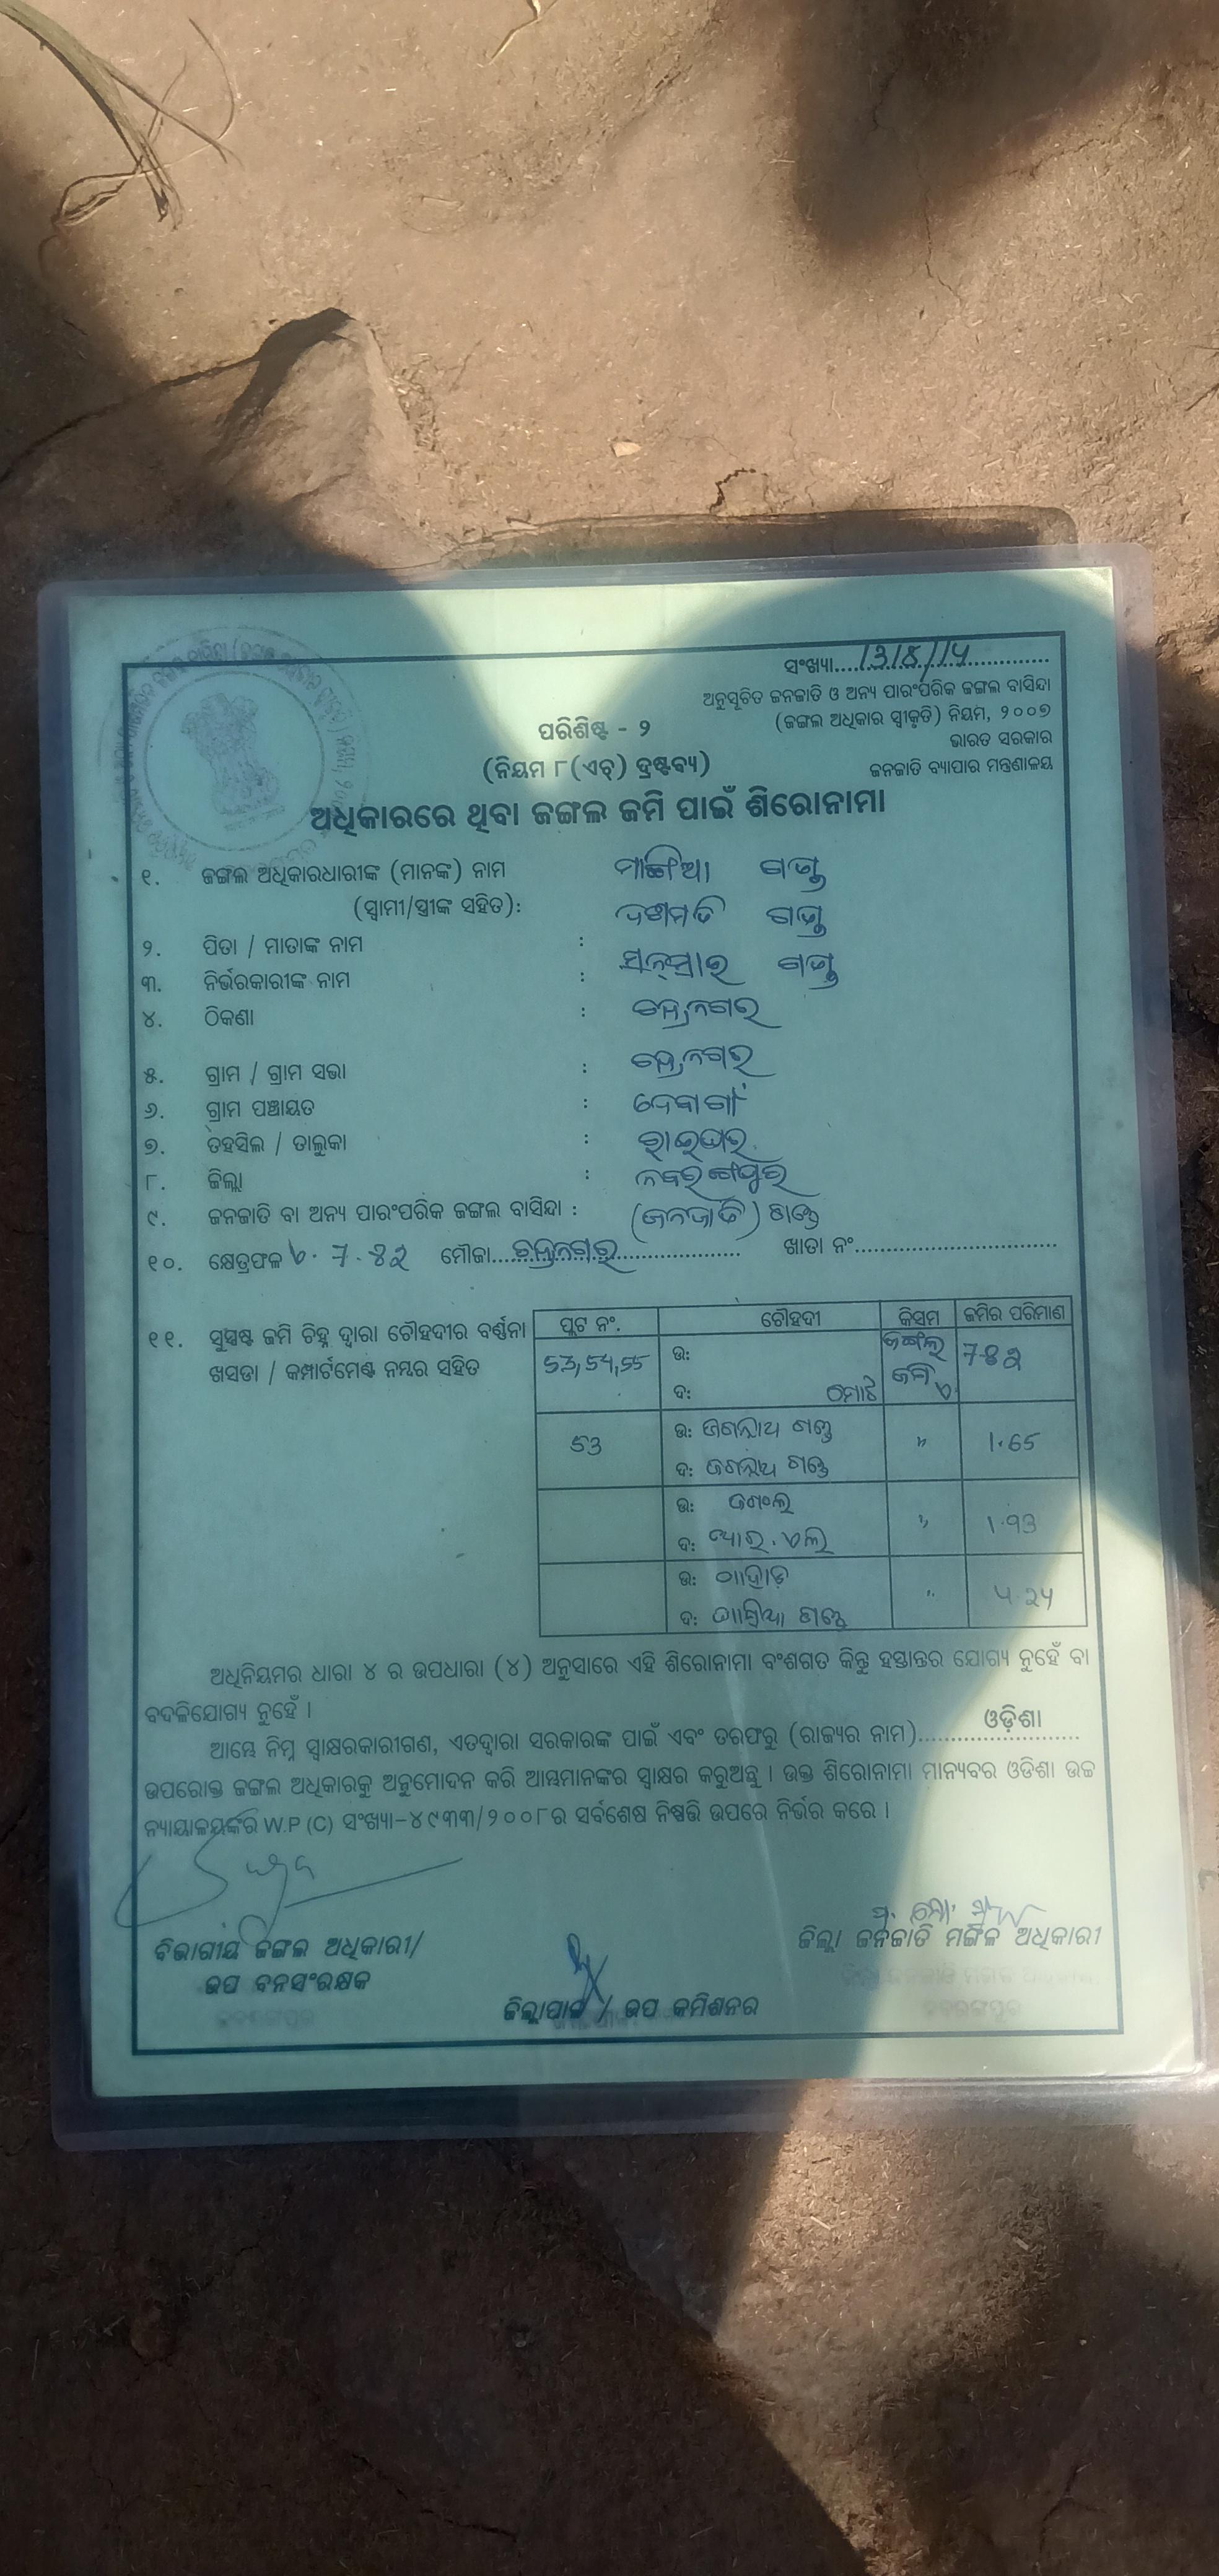 ସଂଖ୍ୟା....
ଅନୁସୂଚିତ ଜନଜାତି ଓ ଅନ୍ୟ ପାରଂପରିକ ଜଙ୍ଗଲ ବାସିନ୍ଦା
(ଜଙ୍ଗଲ ଅଧିକାର ସ୍ୱୀକୃତି) ନିୟମ, ୨୦୦୭
ଭାରତ ସରକାର
ଜନଜାତି ବ୍ୟାପାର ମନ୍ତ୍ରଣାଳୟ
ପରିଶିଷ୍ଟ - ୨
(ନିୟମ ୮(ଏଚ୍) ଦ୍ରଷ୍ଟବ୍ୟ)
ଅଧିକାରରେ ଥିବା ଜଙ୍ଗଲ ଜମି ପାଇଁ ଶିରୋନାମା
୧. ଜଙ୍ଗଲ ଅଧିକାରଧାରୀଙ୍କ (ମାନଙ୍କ) ନାମ
(ସ୍ୱାମୀ/ସ୍ତ୍ରୀଙ୍କ ସହିତ):
୨. ପିତା / ମାତାଙ୍କ ନାମ :
୩. ନିର୍ଭରକାରୀଙ୍କ ନାମ :
୪. ଠିକଣା :
୫. ଗ୍ରାମ / ଗ୍ରାମ ସଭା :
୬. ଗ୍ରାମ ପଞ୍ଚାୟତ : ଦେବାଗାଁ
୭. ତହସିଲ / ତାଲୁକା : ରାଇଘର
୮. ଜିଲ୍ଲା : ନବରଙ୍ଗପୁର
୯. ଜନଜାତି ବା ଅନ୍ୟ ପାରଂପରିକ ଜଙ୍ଗଲ ବାସିନ୍ଦା : (ଜନଜାତି) ଗଣ୍ଡ
୧୦. କ୍ଷେତ୍ରଫଳ ଏ. 7.82 ମୌଜା.... ଖାତା ନଂ....
୧୧. ସୁସ୍ପଷ୍ଟ ଜମି ଚିହ୍ନ ଦ୍ୱାରା ଚୌହଦୀର ବର୍ଣ୍ଣନା
ଖସଡା / କମ୍ପାର୍ଟମେଣ୍ଟ ନମ୍ବର ସହିତ
ପ୍ଲଟ ନଂ. ଚୌହଦୀ କିସମ ଜମିର ପରିମାଣ
53,54,55 ଉ: ଜଙ୍ଗଲ 7.82
ଦ: ମୋଟ ଜମି ଏ.
53 ଉ: ଜଗନ୍ନାଥ ଗଣ୍ଡ " 1.65
ଦ: ଜଗନ୍ନାଥ ଗଣ୍ଡ
ଉ: ଜଙ୍ଗଲ " 1.93
ଦ: ଆର.ଏଲ
ଉ: ପାହାଡ଼ " 4.24
ଦ: ଗଣ୍ଡ
ଅଧିନିୟମର ଧାରା ୪ ର ଉପଧାରା (୪) ଅନୁସାରେ ଏହି ଶିରୋନାମା ବଂଶଗତ କିନ୍ତୁ ହସ୍ତାନ୍ତର ଯୋଗ୍ୟ ନୁହେଁ ବା
ବଦଳିଯୋଗ୍ୟ ନୁହେଁ ।
ଆମ୍ଭେ ନିମ୍ନ ସ୍ୱାକ୍ଷରକାରୀଗଣ, ଏତଦ୍ୱାରା ସରକାରଙ୍କ ପାଇଁ ଏବଂ ତରଫରୁ (ରାଜ୍ୟର ନାମ)....ଓଡ଼ିଶା....
ଉପରୋକ୍ତ ଜଙ୍ଗଲ ଅଧିକାରକୁ ଅନୁମୋଦନ କରି ଆମ୍ଭମାନଙ୍କର ସ୍ୱାକ୍ଷର କରୁଅଛୁ । ଉକ୍ତ ଶିରୋନାମା ମାନ୍ୟବର ଓଡିଶା ଉଚ୍ଚ
ନ୍ୟାୟାଳୟଙ୍କର W.P (C) ସଂଖ୍ୟା-୪୯୩୩/୨୦୦୮ର ସର୍ବଶେଷ ନିଷ୍ପତ୍ତି ଉପରେ ନିର୍ଭର କରେ ।
ବିଭାଗୀୟ ଜଙ୍ଗଲ ଅଧିକାରୀ/
ଉପ ବନସଂରକ୍ଷକ
ଜିଲ୍ଲାପାଳ / ଉପ କମିଶନର
ଜିଲ୍ଲା ଜନଜାତି ମଙ୍ଗଳ ଅଧିକାରୀ